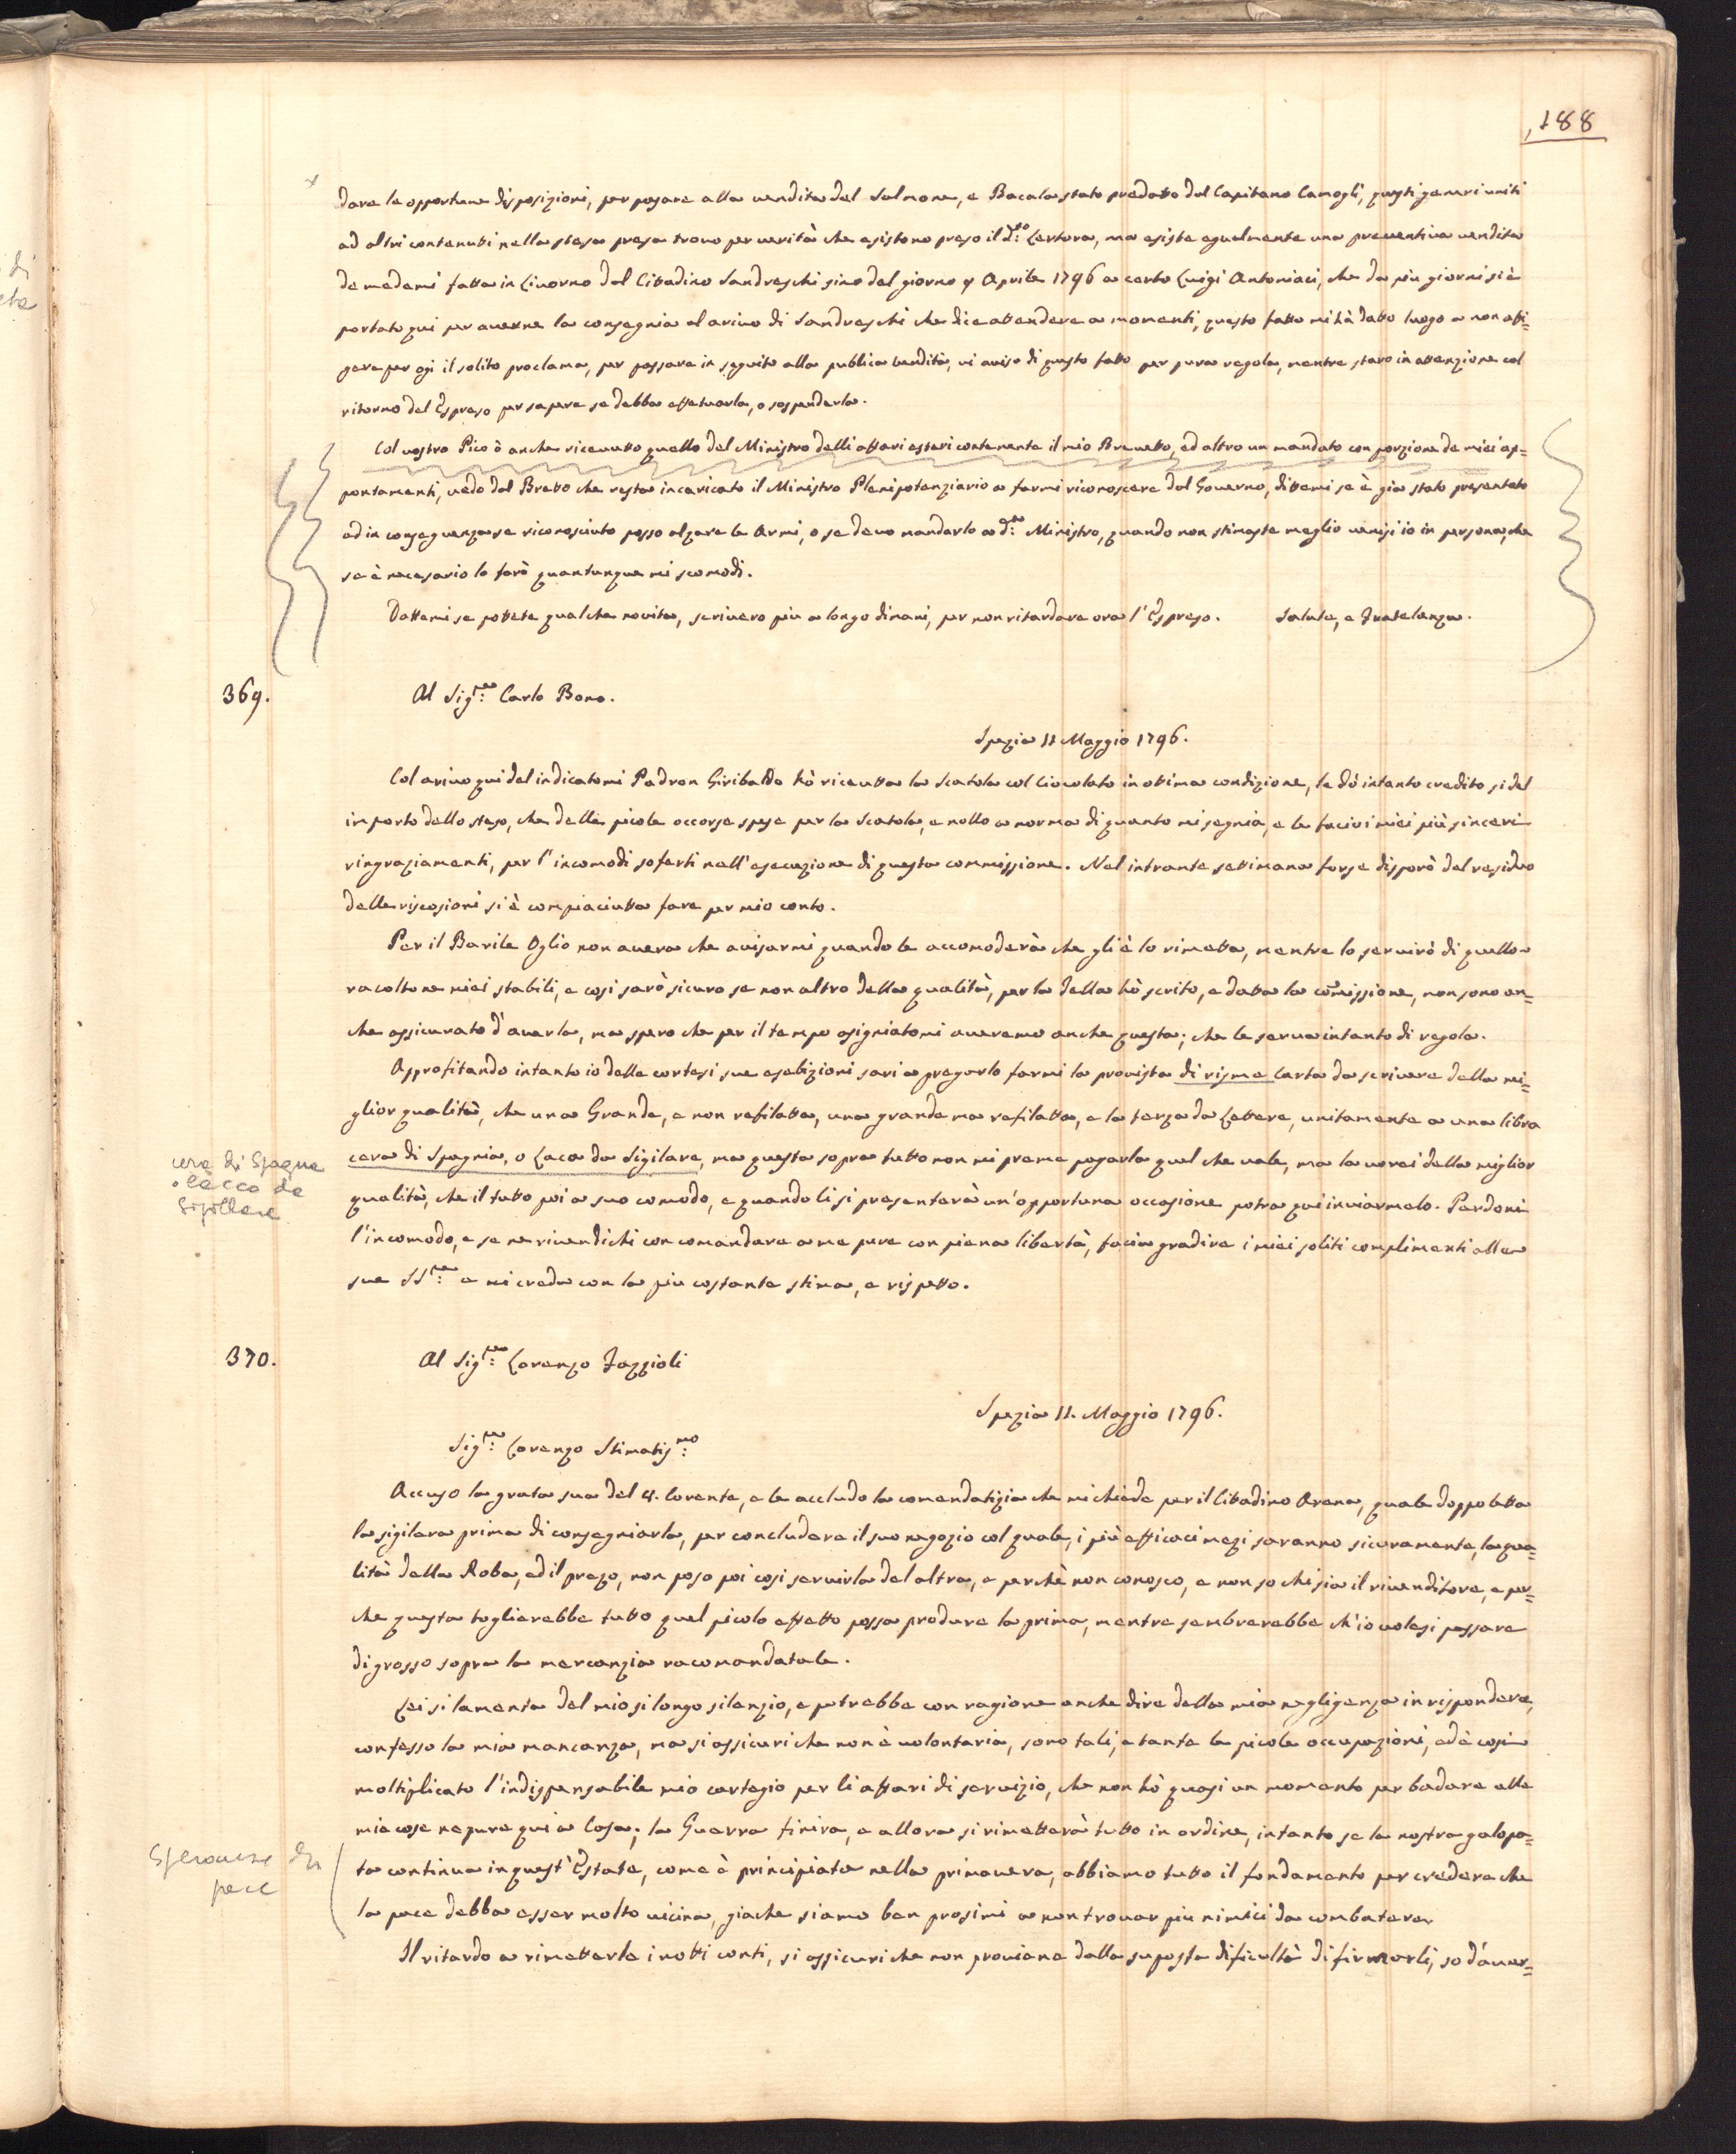 188
dare le opportune disposizioni, per pasare alla vendita del Salmone, e Bacala stato predatto dal Capitano Camogli, questi generi uniti
ad altri contenuti nella stesa presa trovo per verità che esistono preso il d.to Certora, ma esiste egualmente una preventiva vendita
de medemi fatta in Livorno dal Cittadino Sandreschi sino del giorno 9 Aprile 1796 a certo Luigi Antoniaci, che da più giorni si è
portato qui per averne la consegnia al arivo di Sandreschi che dice attendere a momenti, questo fatto mi hà datto luogo a non affi=
gere per ogi il solito proclama, per passare in seguito alla publica vendita, vi aviso di questo fatto per pura regola, mentre staro in attenzione col
ritorno del Espreso per sapere se debba effetuarla, o sospenderla.
Col vostro Pico ò anche ricevutto quello del Ministro delli affari esteri contenente il mio Brevetto, ed altro un mandato con porzione de miei ap=
pontamenti, vedo dal Bretto che resta incaricato il Ministro Plenipotenziario a farmi riconoscere dal Governo, ditemi se è gia stato presentato
ed in conseguenza se riconosciuto posso alzare le Armi, o se devo mandarlo a d.to Ministro, quando non stimaste meglio venisi io in persona, che
se è necesario lo farò quantunque mi scomodi.
Dattemi se pottete qualche novita, scrivero piu a longo dimani, per non ritardare ora l'Espreso. Salute, e Fratelanza.
369. Al Sig.re Carlo Bono.
Spezia 11 Maggio 1796.
Col arivo qui del indicatomi Padron Giribaldo hò riceutta la Scatola col Ciocolato in ottima condizione, le dò intanto credito si del
importo dello steso, che delle picole occorse spese per la Scatola, e nollo a norma di quanto mi segnia, e le facio i miei più sinceri
ringraziamenti, per l'incomodi soferti nell'esecuzione di questa commissione. Nel intrante settimana forse disporò del residuo
delle riscosioni si è compiaciutta fare per mio conto.
Per il Barile Oglio non avera che avisarmi quando le accomoderà che gli è lo rimetta, mentre lo servirò di quello
racolto ne miei stabili, e cosi sarò sicuro se non altro della qualità, per la della hò scrito, e datta la comissione, non sono an=
che assicurato d'averla, ma spero che per il tempo asigniatomi averemo anche questa; che le serva intanto di regola.
Approfitando intanto io delle cortesi sue esebizioni sari a pregarlo farmi la provista di risme Carta da scrivere della mi=
glior qualità, che una Grande, e non refilatta, una grande ma refilatta, e la terza da Lettere, unitamente a una libra
cera di Spagnia, o Laca da Sigilare, ma questa sopra tutto non mi preme pagarla quel che vale, ma la vorei della miglior
cera di Spagna
o lacca da
sigillare
qualità, che il tutto poi a suo comodo, e quando li si presenterà un'opportuna occasione potra qui inviarmelo. Perdoni
l'incomodo, e se ne rivendichi con comandare a me pure con piena libertà, facia gradire i miei soliti complimenti alle
sue SS.re e mi creda con la piu costante stima, e rispetto.
370. Al Sig.re Lorenzo Fazzioli
Spezia 11. Maggio 1796.
Sig.re Lorenzo Stimatis.mo
Accuso la grata sua del 4. Corente, e le accludo la comendatizia che mi chiede per il Cittadino Arena, quale doppo letta
la sigilera prima di consegniarla, per concludere il suo negozio col quale, i più efficaci mezi saranno sicuramente, la qua=
lità della Roba, ed il prezo, non poso poi cosi servirla del altra, e perchè non conosco, e non so chi sia il rivenditore, e per=
che questa toglierebbe tutto quel picolo effetto possa produre la prima, mentre sembrerebbe ch'io volesi passare
di grosso sopra la mercanzia racomandatale.
Lei si lamenta del mio si longo silenzio, e potrebbe con ragione anche dire della mia negligenza in rispondere,
confesso la mia mancanza, ma si assicuri che non è volontaria, sono tali, e tante le picole occupazioni, ed è cosi
moltiplicato l'indispensabile mio cartegio per li affari di servizio, che non hò quasi un momento per badare alle
mie cose nepure qui a Casa; la Guerra finira, e allora si rimetterà tutto in ordine, intanto se la nostra galopa=
Speranze di
pace
ta continua in quest'Estate, come è principiata nella primavera, abbiamo tutto il fondamento per credere che
la pace debba esser molto vicina, giache siamo ben prosimi a non trovar piu nimici da combatere.
Il ritardo a rimetterle i notti conti, si assicuri che non proviene dalla suposta dificultà di firmarli, so d'aver=